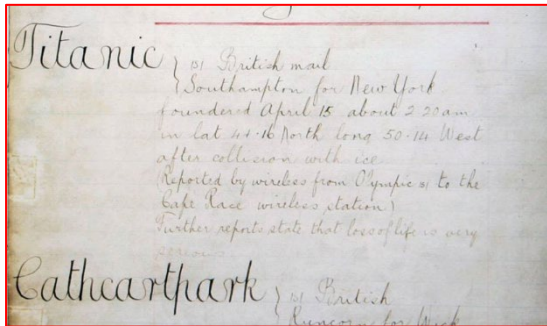 Titanic } (s) British mail
Southampton for New York
foundered April 15 about 2 20 am
in lat 41·16 North long 50·14 West
after collision with ice
(Reported by wireless from Olympic (s) to the
Cape Race wireless station)
Further reports state that loss of life is very
serious
Cathcartpark } (s) British
Runcorn for Wick